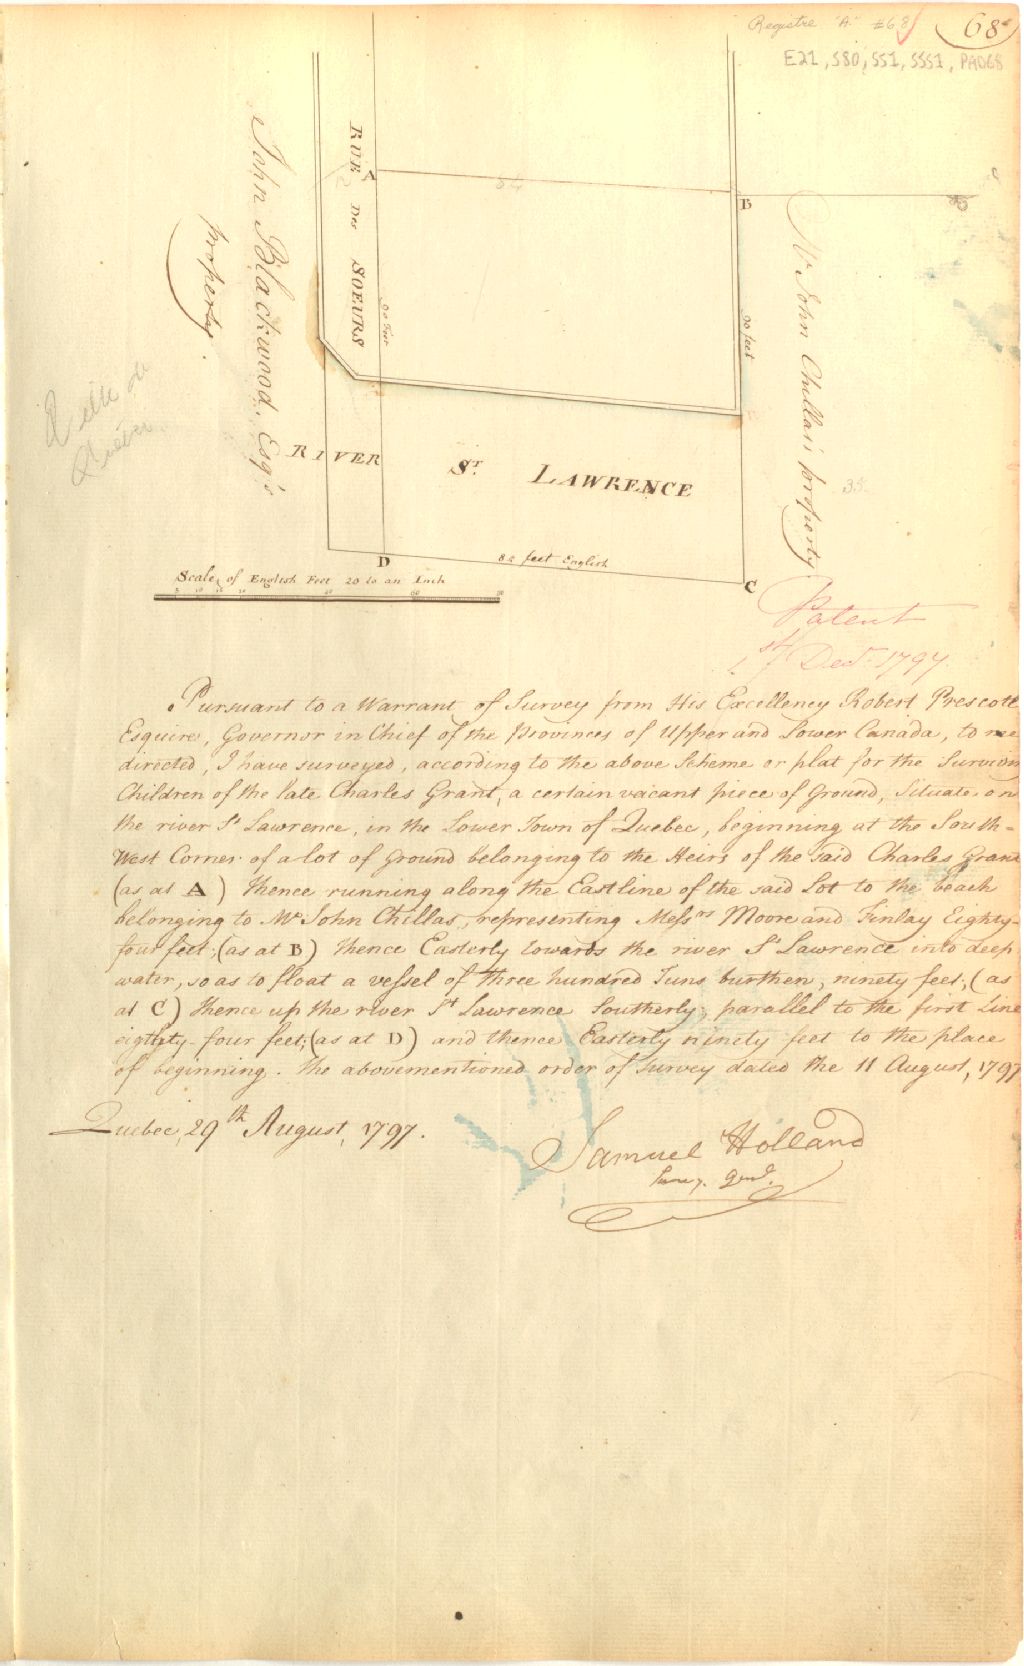 Registre "A" #68
68
E21, S80, SS1, SSS1, PA068
RUE Des SOEURS
A
84
B
John Blackwood, Esq's
property.
90 Feet
90 feet
Mr John Chillas's property
Ville de
Québec
RIVER ST. LAWRENCE
35
D
84 feet English
C
Scale, of English Feet 20 to an Inch
5 10 15 20 40 60 80
Patent
1st Decr. 1797
Pursuant to a Warrant of Survey from His Excellency Robert Prescott
Esquire, Governor in Chief of the Provinces of Upper and Lower Canada, to me
directed, I have surveyed, according to the above Scheme or plat for the Surviving
Children of the late Charles Grant, a certain vacant piece of Ground, Situate on
the river St Lawrence, in the Lower Town of Quebec, beginning at the South-
West Corner of a lot of Ground belonging to the Heirs of the said Charles Grant
(as at A) thence running along the East line of the said Lot to the beach
belonging to Mr John Chillas, representing Messrs Moore and Finlay Eighty-
four feet; (as at B) thence Easterly towards the river St Lawrence into deep
water, so as to float a vessel of three hundred Tuns burthen, ninety feet; (as
at C) thence up the river St Lawrence Southerly, parallel to the first Line
eighty-four feet; (as at D) and thence Easterly ninety feet to the place
of beginning. The abovementioned order of Survey dated the 11 August, 1797
Quebec, 29th August, 1797.
Samuel Holland
Survy. Genl.